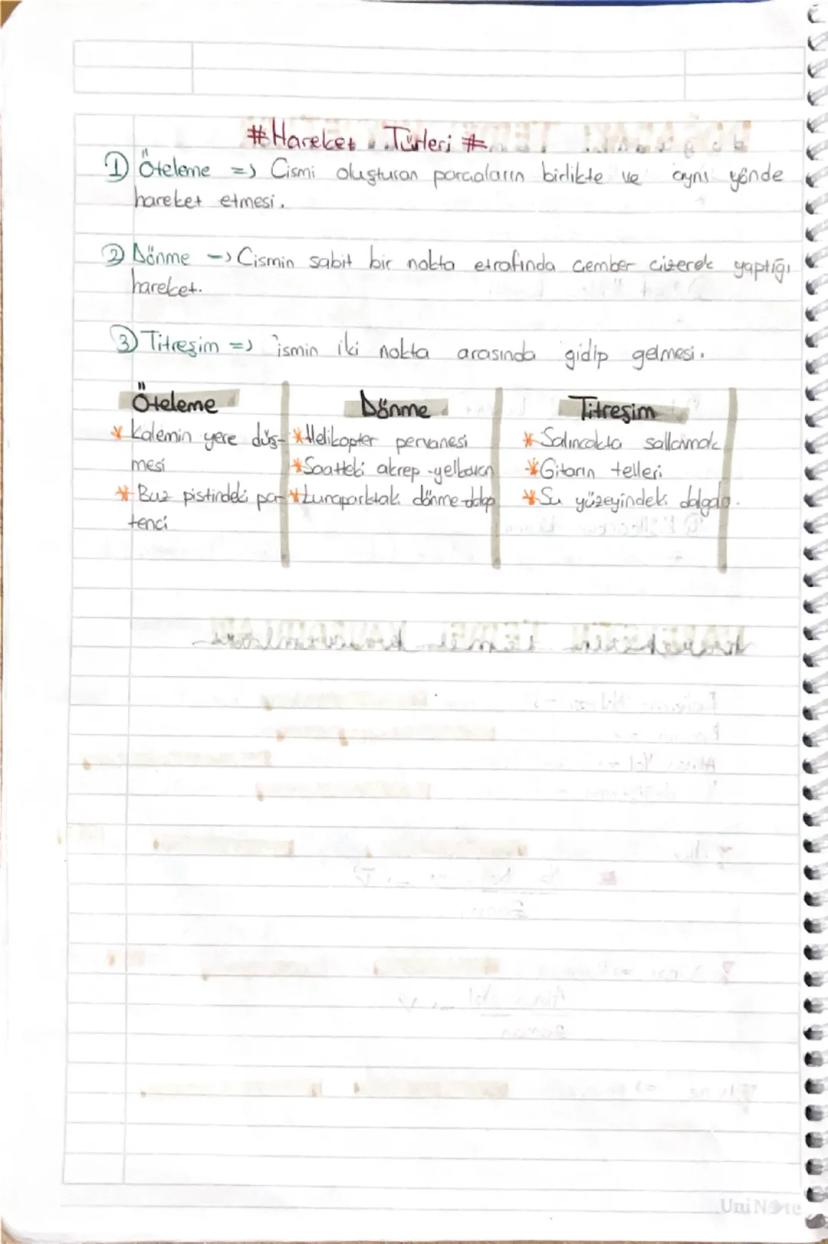 #Hareket Türleri #
1) Öteleme => Cismi oluşturan parçaların birlikte ve aynı yönde
hareket etmesi.
2) Dönme -> Cismin sabit bir nokta etrafında çember çizerek yaptığı
hareket.
3) Titreşim => ismin iki nokta arasında gidip gelmesi.
Öteleme Dönme Titreşim
* Kalemin yere düş- * Helikopter pervanesi * Salıncakta sallanmak
mesi * Saatteki akrep-yelkovan * Gitarın telleri
* Buz pistindeki pa- * Lunaparktaki dönme dolap * Su yüzeyindeki dalgala
tenci
UniNote